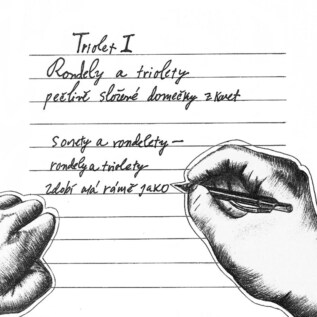 Triolet I
Rondely a triolety
pečlivě složené domečky z karet
sonety a rondelety –
rondely a triolety
zdobí má rámě jako